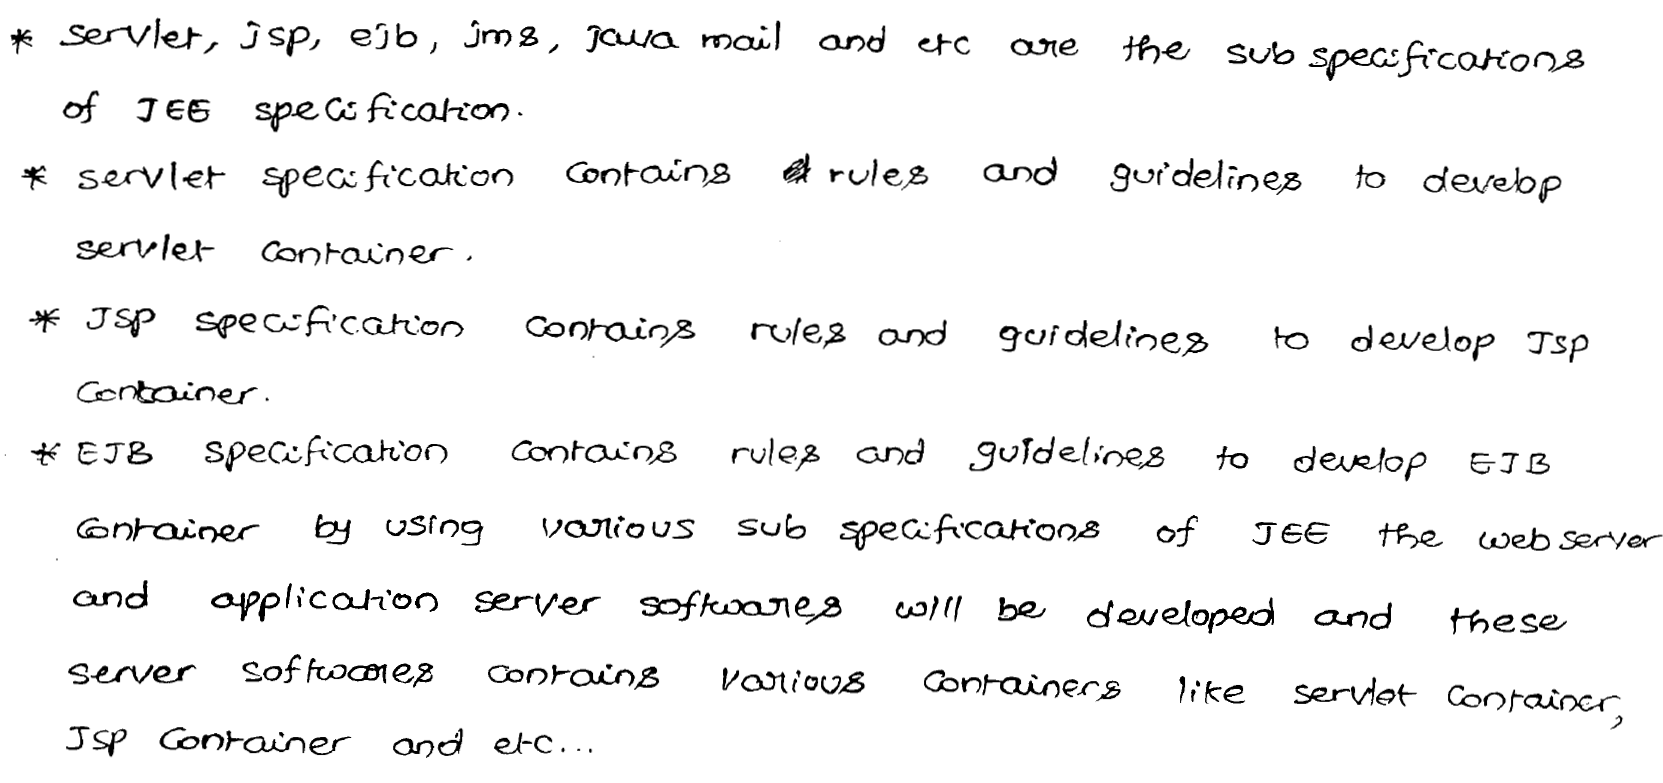 * servlet, jsp, ejb, jms, java mail and etc are the sub specifications
of JEE specification.
* servlet specification contains rules and guidelines to develop
servlet container.
* JSP specification contains rules and guidelines to develop JSP
Container.
* EJB specification contains rules and guidelines to develop EJB
container by using various sub specifications of JEE the web server
and application server softwares will be developed and these
server softwares contains various containers like servlet container,
JSP container and etc...